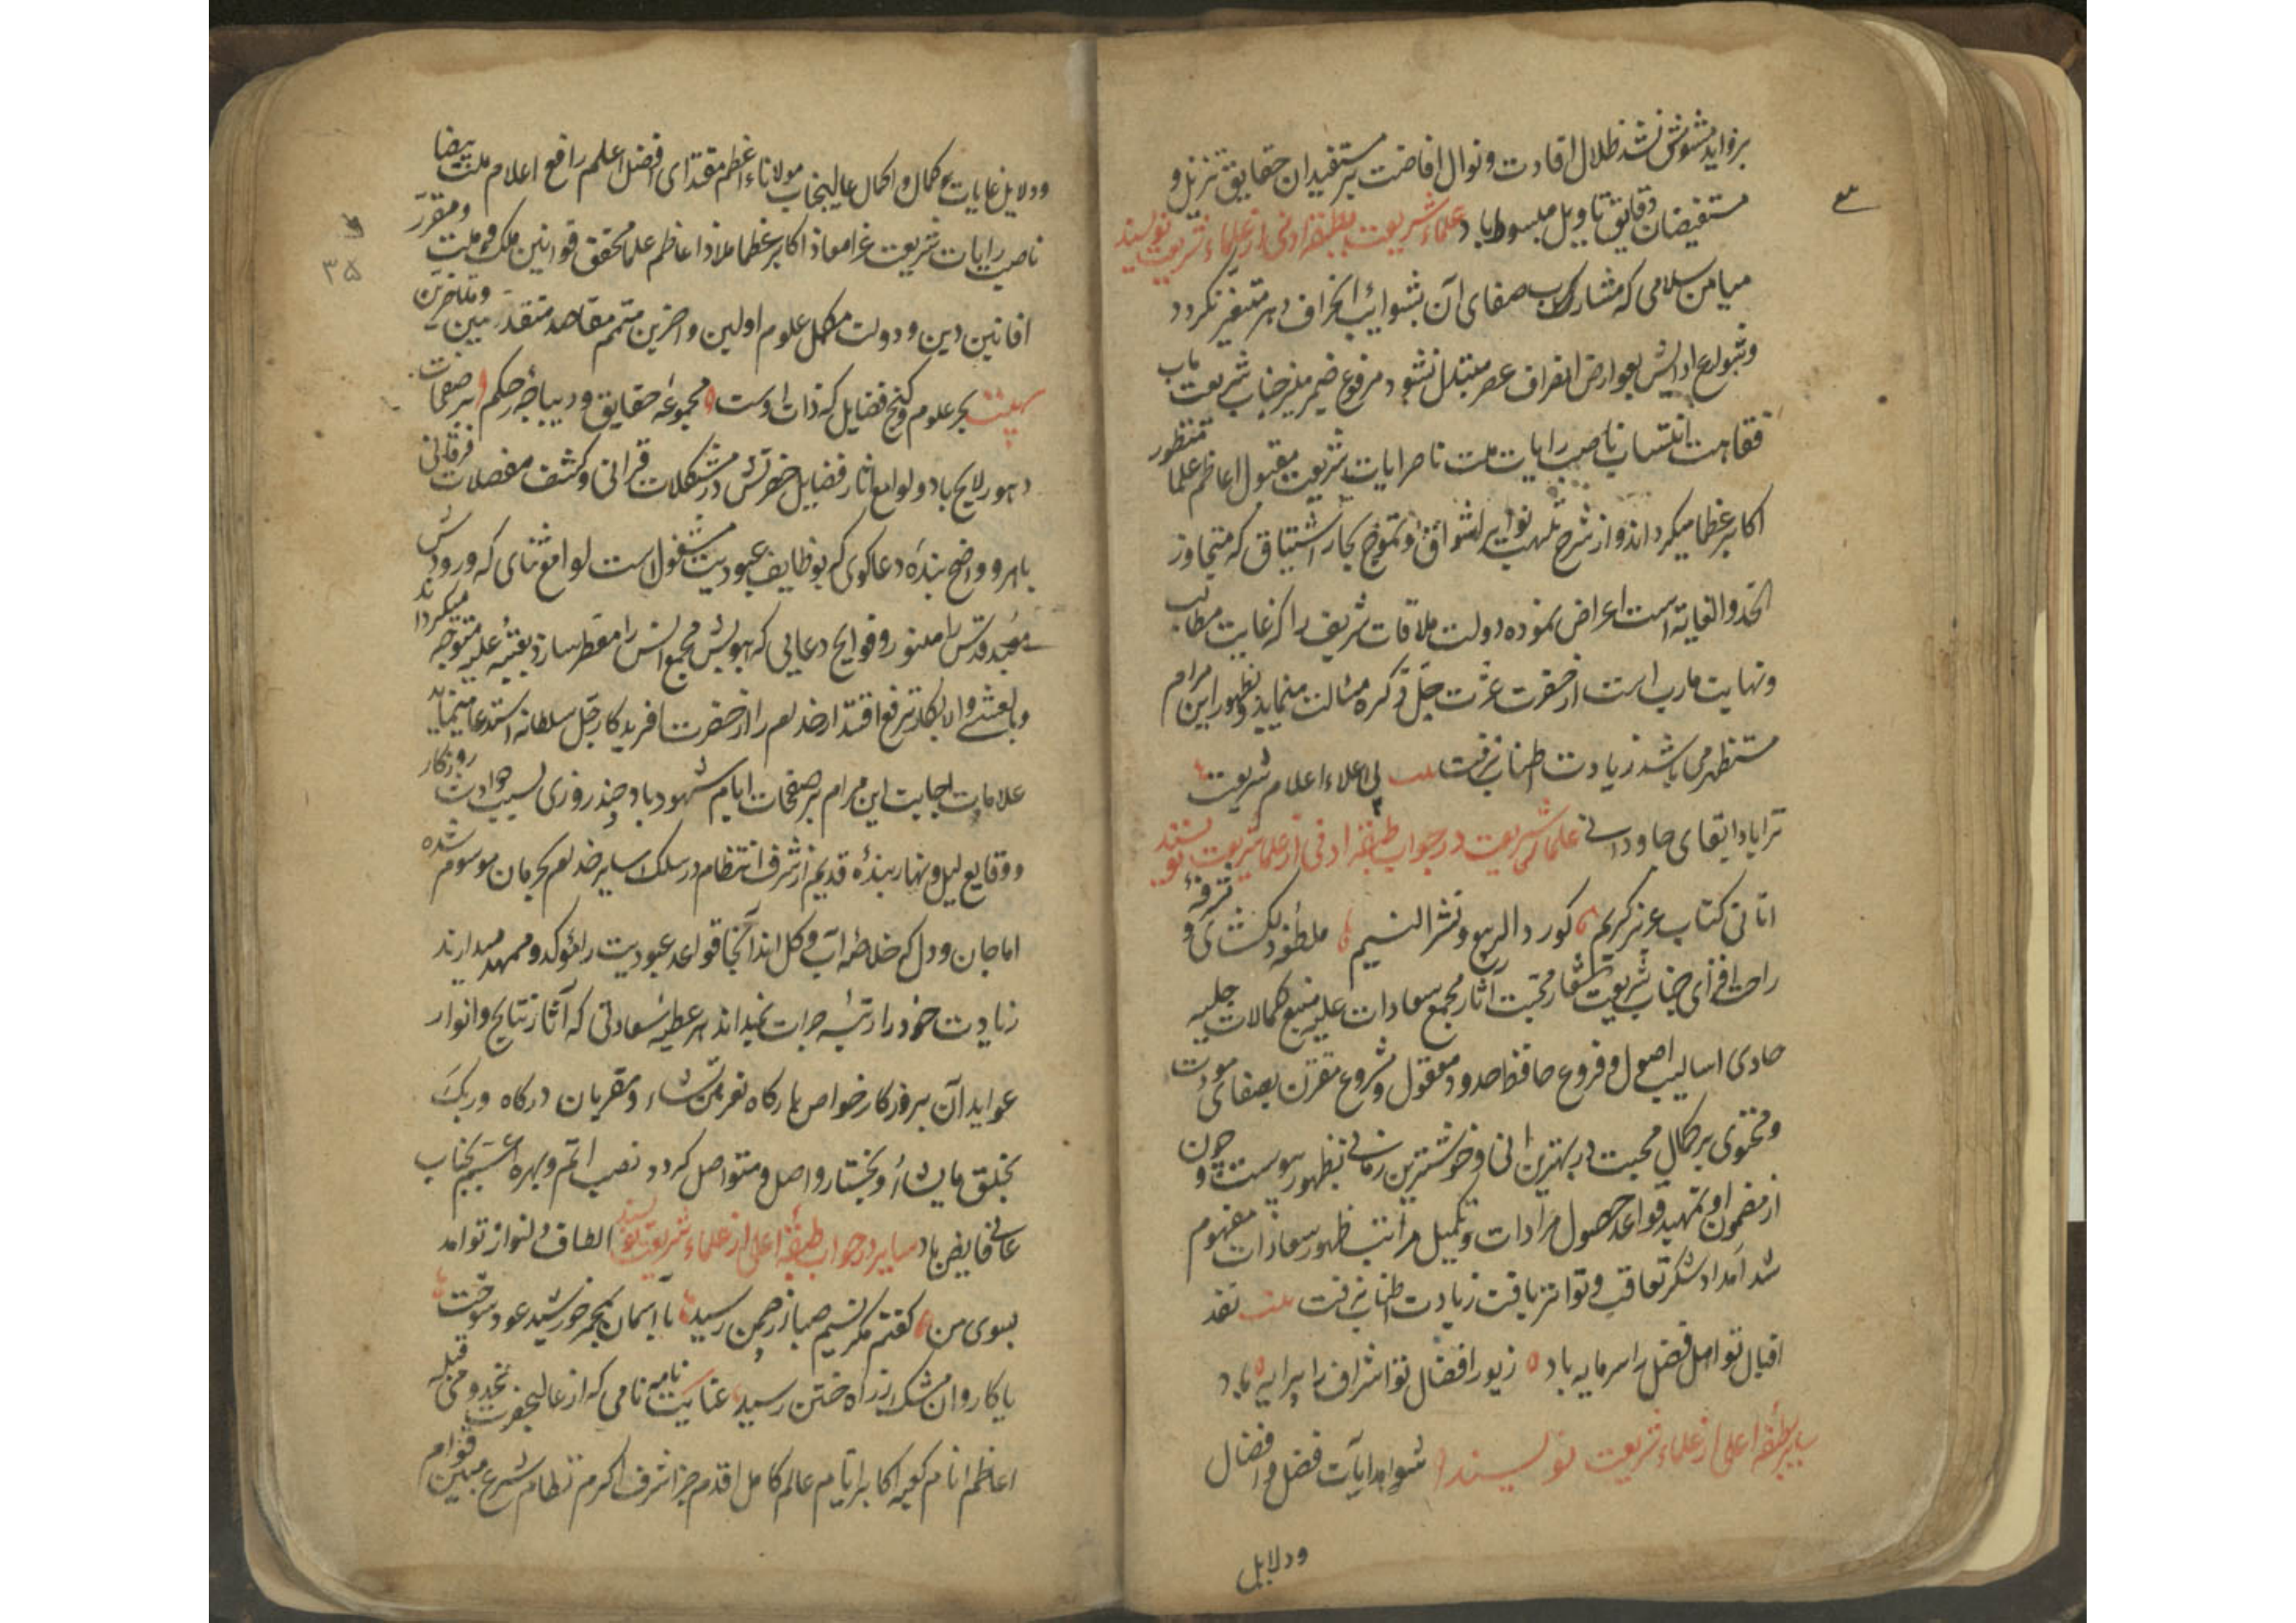 بروایدمشوش نشد ظلال افادت و نوال افاضت بر مستفیدان حقایق تنزیل و
مستفیضان دقایق تاویل مبسوط باد علماء شریعت بطبقه ادنی از علماء شریعت نویسند
میامن سلامی که مشارب صفای آن بشوایب انحراف دهر متغیر نکردد
و شوارع بعوارض انصراف عصر متبدل نشود مرفوع ضمیر منیر جناب شریعت ماب
فقاهت انتساب ناصب رایات ملت ناصر ایات شریعت مقبول اعاظم علما منظور
اکابر عظما میکرداند و از شرح تلهب نوایر اشواق و تموج بحار اشتیاق که متجاوز
الحد و الغایة است اعراض نموده دولت ملاقات شریف را که غایت مطالب
و نهایت مارب است از حضرت عزت جل ذکره مسالت مینماید و بظهور این مرام
مستظهر می باشد زیادت اطناب نرفت بیت پی اعلاء اعلام شریعت
ترا بادا بقای جاودانی علماء شریعت در جواب طبقه ادنی از علما شریعت نویسند
اتانی کتاب عزیز کریم کورد الربیع و نشر النسیم ملطفه دلکشای و
راحت افزای جناب شریعت شعار محبت آثار مجمع سعادات علیه منبع کمالات جلیه
حاوی اسالیب اصول و فروع حافظ حدود معقول و مشروع مقترن بصفای مودت
و محتوی بر کمال محبت در بهترین انی و خوشترین زمانی بظهور پیوست و چون
از مضمون او تمهید قواعد حصول مرادات و تکمیل مراتب ظهور سعادات مفهوم
شد امداد شکر تعاقب و تواتر یافت زیادت اطناب نرفت بیت نقد
اقبال تو اهل فضل را سرمایه باد زیور افضال تو اشراف را پیرایه باد
سایر بطبقه اعلی از علماء شریعت نویسند شواهد آیات فضل و افضال
و دلایل
و دلایل غایات کمال و اکمال عالیجناب مولاناء اعظم مقتدای افضل اعلم رافع اعلام ملت بیضا
ناصب رایات شریعت غرا معاذ اکابر عظما ملاذ اعاظم علما محقق قوانین ملک و ملت و مقرر
افانین دین و دولت مکمل علوم اولین و اخرین متمم مقاصد متقدمین و متاخرین
بیت بحر علوم و کنج فضایل که ذات اوست مجموعه حقایق و دیباچه حکم بر صفحات
دهور لایح باد و لوامع اثار فضایل حضرتش در مشکلات قرانی و کشف معضلات فرقانی
باهر و واضح بنده دعاکوی که بوظایف عبودیت مشغول است لوامع ثنای که ورودش
معبد قدس را منور و فوایح دعایی که هبوبش مجمع انس را معطر سازد بعتبه علیه متوجه میکرداند
و بالعشی و الابکار ترفع اقتدار خدام را از حضرت افریدکار جل سلطانه استدعا مینماید
علامات اجابت این مرام بر صفحات ایام مشهود باد چند روزی بسبب حوادث روزکار
و وقایع لیل و نهار بنده قدیم از شرف انتظام در سلک سایر خدام بحرمان موسوم شده
اما جان و دل که خلاصه آب و کل اند آنجا قواعد عبودیت را موکد و ممهد میدارند
زیادت خود را رتبه جرات نمیداند هر عطیه سعادتی که آثار نتایج و انوار
عواید آن بروزکار خواص بارکاه نعز من نشاء و مقربان درکاه و ربک
یخلق ما یشاء و یختار واصل و متواصل کردد نصیب اتم و بهره اعم بجناب
عالی فایض باد سایر در جواب طبقه اعلی از علماء شریعت نویسند الطاف دلنواز تو امد
بسوی من کفتم مکر نسیم صبا از چمن رسید یا اسمان بمجمر خورشید عود سوخت
یا کاروان مشک ز راه ختن رسید عنایت نامه نامی که از عالیحضرت مخدومی قبله
اعاظم انام کعبه اکابر ایام عالم کامل اقدم اشرف اکرم نظام شرع مبین قوام
۳۵